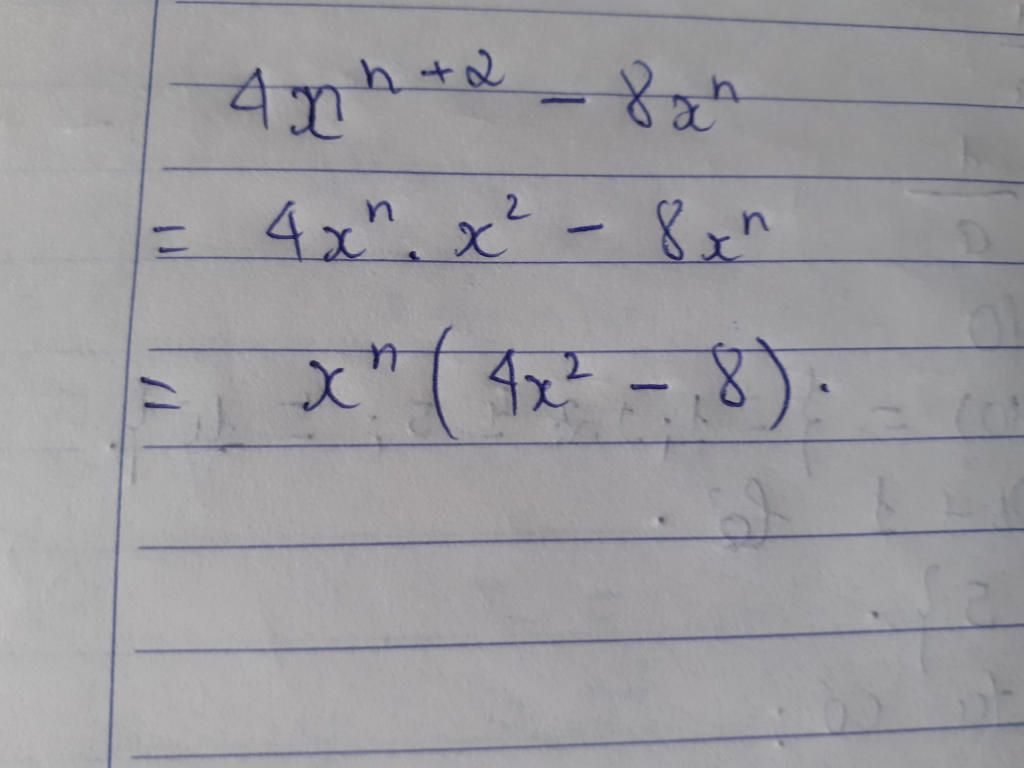 4xⁿ⁺² - 8xⁿ
= 4xⁿ . x² - 8xⁿ
= xⁿ (4x² - 8).